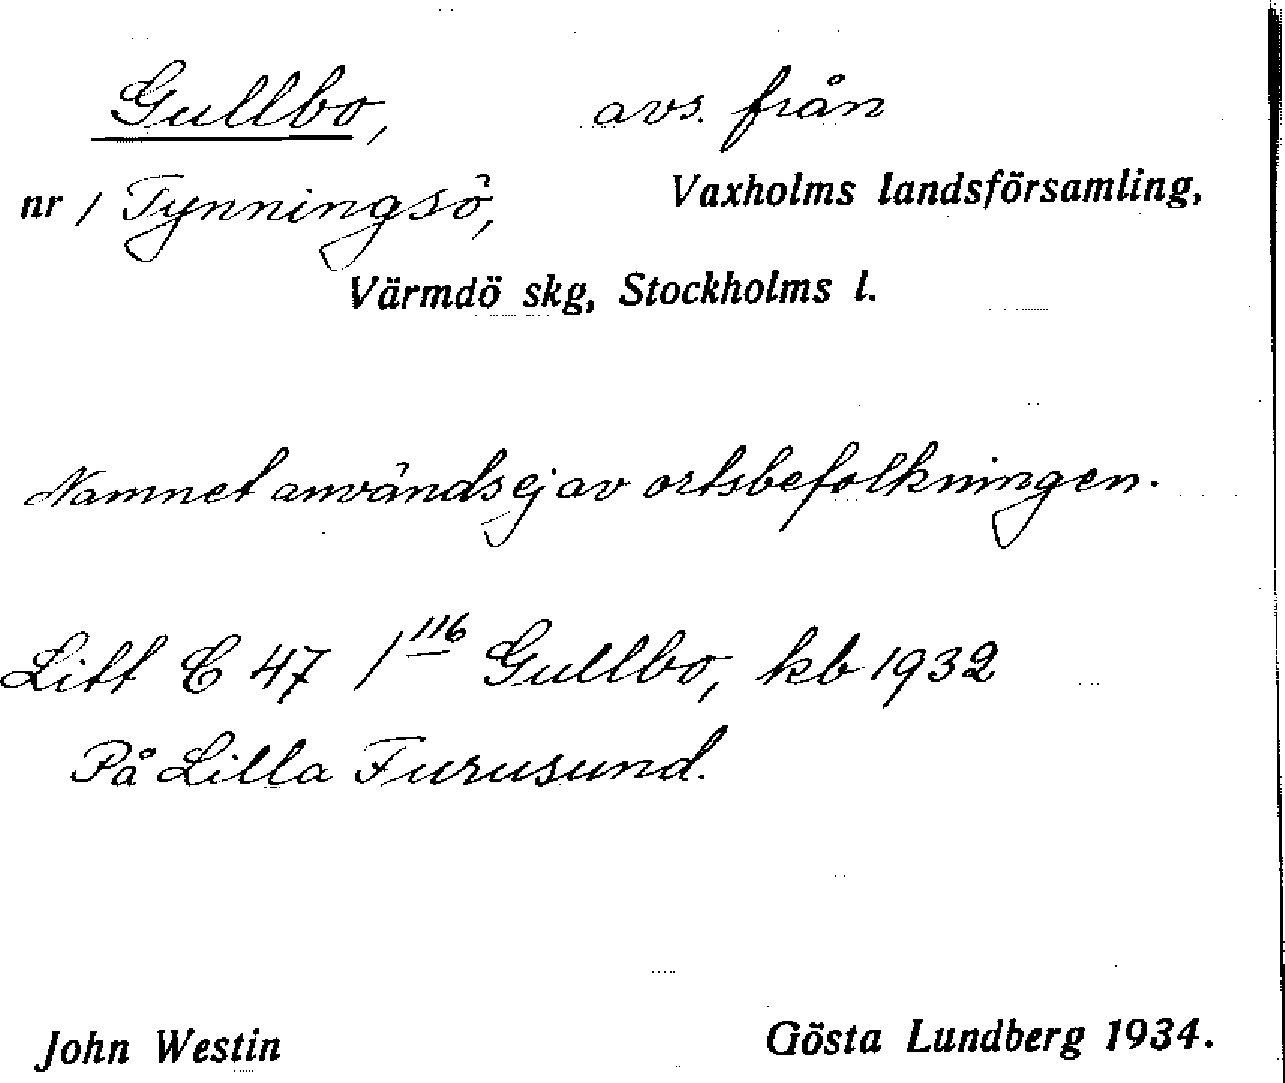 Gullbo, avs. från
nr 1 Tynningsö, Vaxholms landsförsamling,
Värmdö skg, Stockholms l.
Namnet användes ej av ortsbefolkningen.
Litt C 47 1 116 Gullbo, kb 1932
På Lilla Furusund.
John Westin Gösta Lundberg 1934.